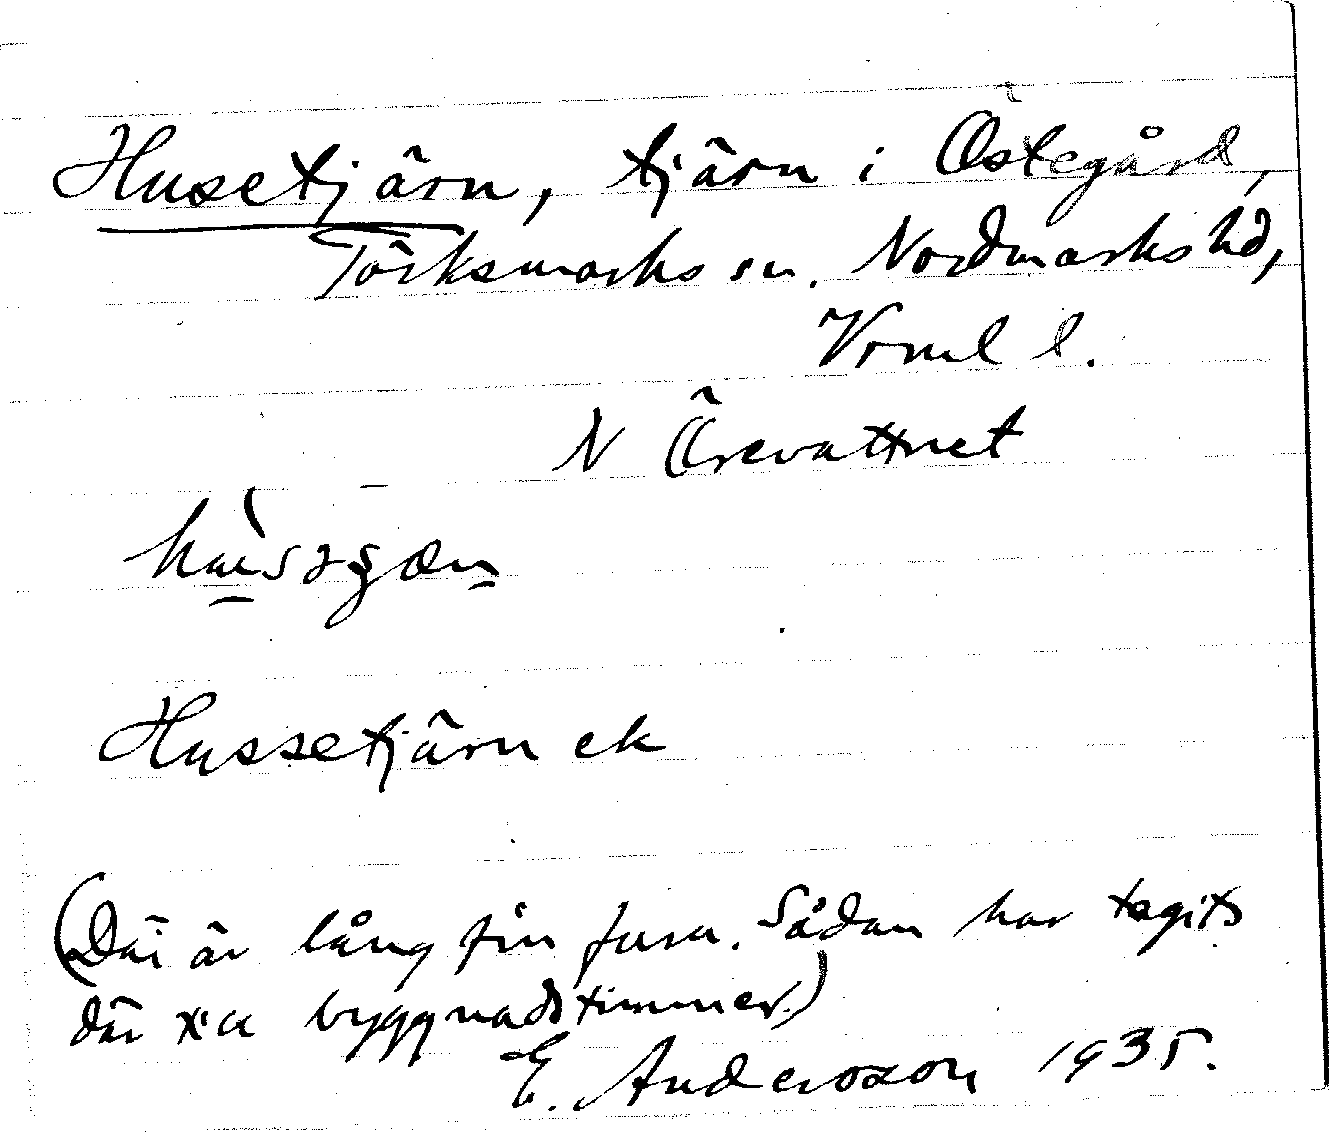 Husetjärn, tjärn i Östegård,
Töcksmarks sn. Nordmarks hd,
Vrml l.
N Örevattnet
Hussetjärn ek
(Där är lång fin fura. Sådan har tagits
där till byggnadstimmer.)
E. Andersson 1935.